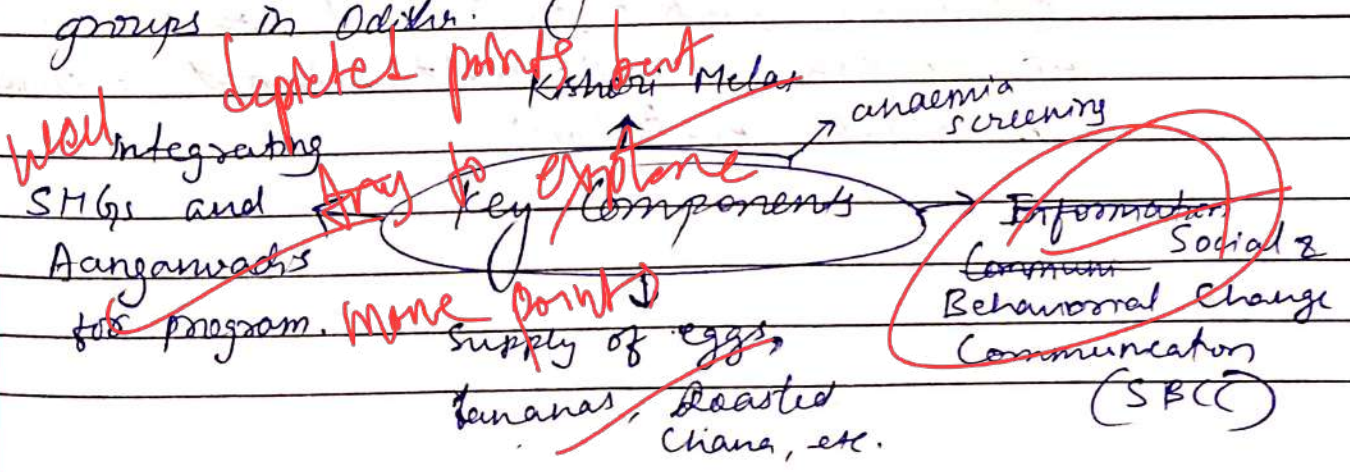 groups in Odisha.
well depicted points but
try to explane
more points
Kishori Melas
anaemia
screening
integrating
SHGs and
Aanganwadis
for program.
Key Components
Information
Commun
Social &
Behaviorral Change
Communication
(SBCC)
Supply of eggs,
bananas, Roasted
Chana, etc.